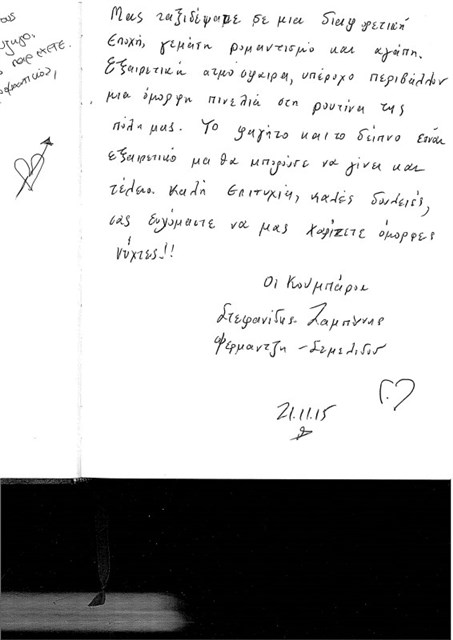 Μας ταξιδέψαμε σε μια διαφορετική
εποχή, γεμάτη ρομαντισμό και αγάπη.
Εξαιρετική ατμόσφαιρα, υπέροχο περιβάλλον
μια όμορφη πινελιά στη ρουτίνα της
πόλη μας. Το φαγητο και το δείπνο είναι
εξαιρετικό μα θα μπορούσε να γίνει και
τέλειο. Καλή επιτυχία, καλές δουλειές,
σας ευχόμαστε να μας χαρίζετε όμορφες
νύχτες!!
Οι Κουμπάροι
Στεφανίδης
21.11.15